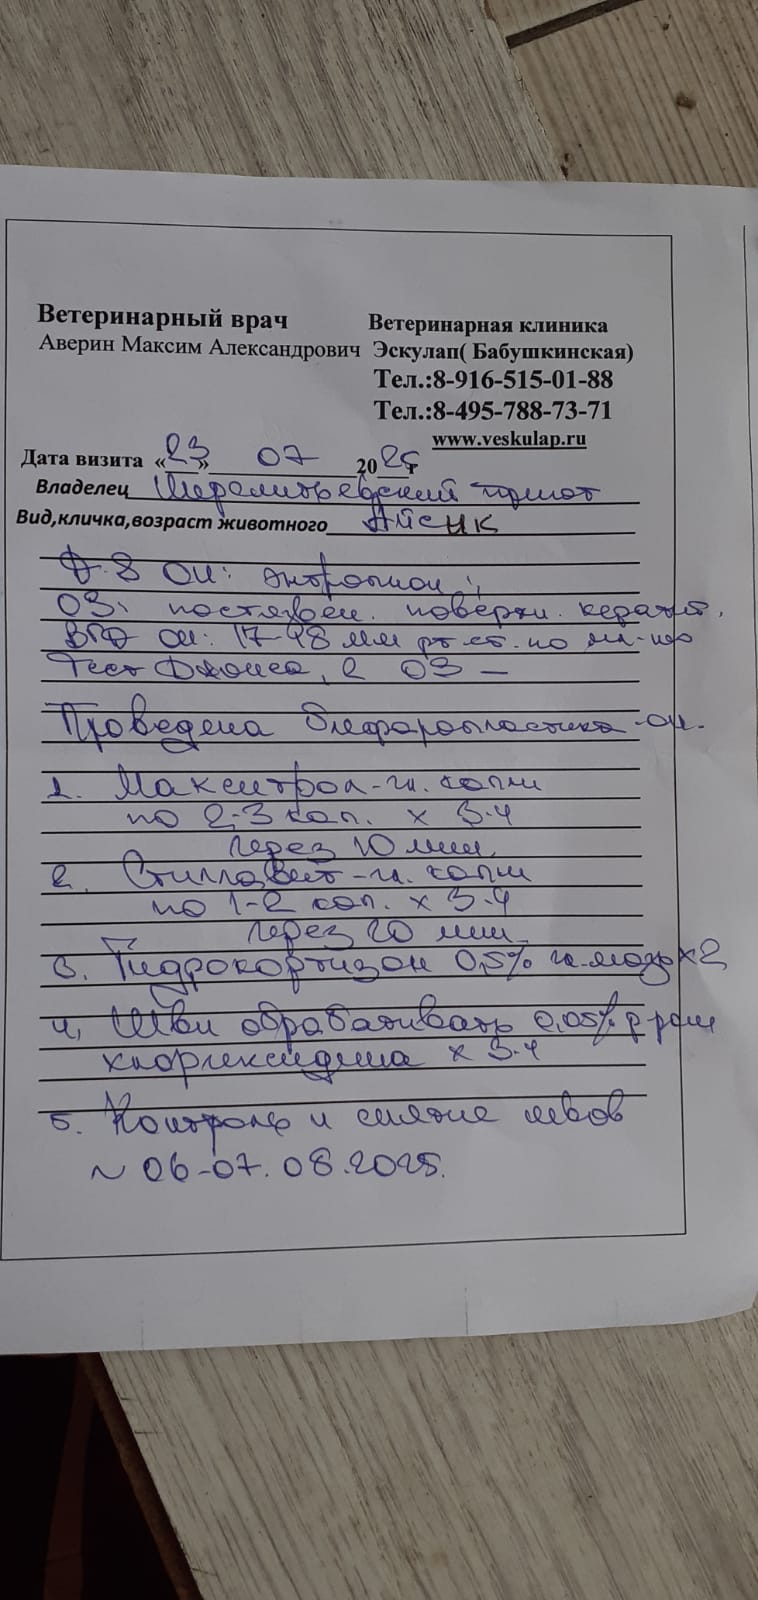 Ветеринарный врач
Аверин Максим Александрович
Ветеринарная клиника
Эскулап( Бабушкинская)
Тел.:8-916-515-01-88
Тел.:8-495-788-73-71
www.veskulap.ru
Дата визита «23» 07 2025
Владелец Шереметьевский приют
Вид,кличка,возраст животного Айсик
D-S OU: энтропион;
OS: поверхн. кератит.
ВГД OU: 17-18 мм рт. ст. по
Тест Джонса, 2 OS —
Проведена блефаропластика OU.
1. Макситрол-гл. капли
по 2-3 кап. х 3-4
через 10 мин.
2. Стиллавит-гл. капли
по 1-2 кап. х 3-4
через 20 мин.
3. Гидрокортизон 0,5% гл. мазь х 2
4. Швы обрабатывать 0,05% р-ром
хлоргексидина х 3-4
5. Контроль и снятие швов
~ 06-07.08.2025.